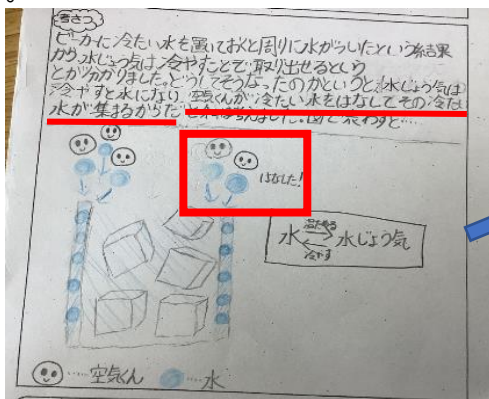 考さつ
ビーカーに冷たい水を置いておくと周りに水がついたという結果
から水じょう気は冷やすことで取り出せるという
ことが分かりました。どうしてそうなったのかというと、水じょう気は
冷やすと水になり空気くんが冷たい水をはなしてその冷たい
水が集まるからだと考えました。図で表わすと…
はなした!
温ためる
水 水じょう気
冷やす
……空気くん ……水